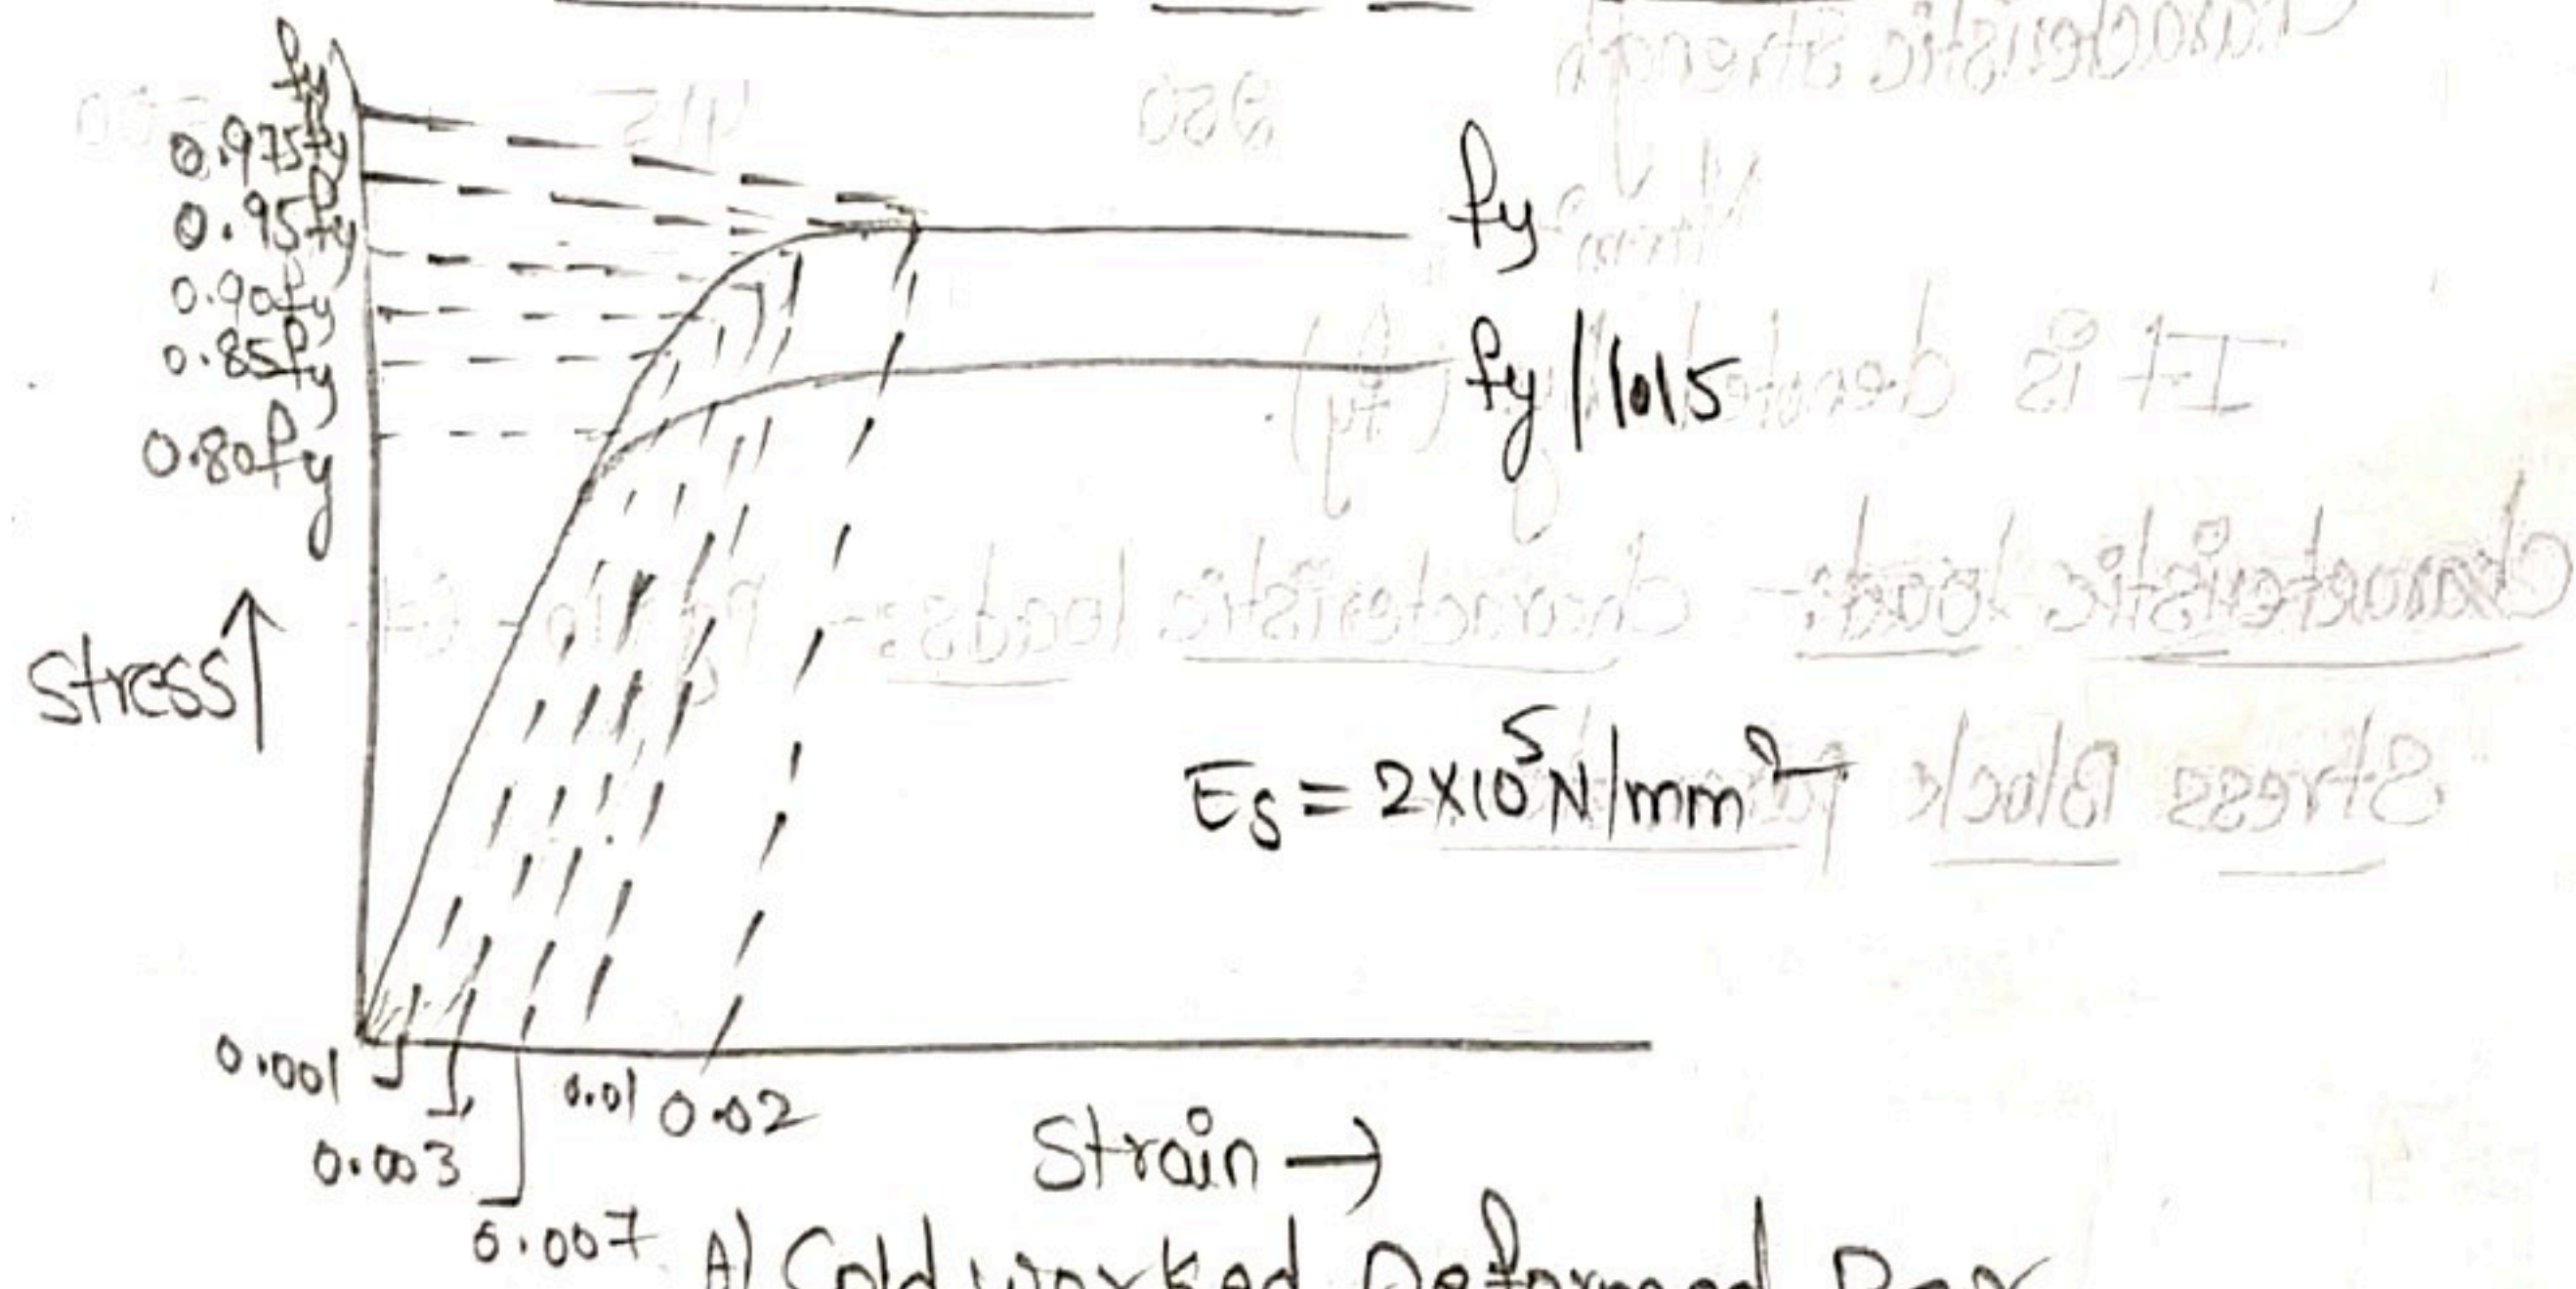 fy
0.975fy
0.95fy
0.90fy
0.85fy
0.80fy
fy
fy/1.15
Stress
Es = 2x10^5 N/mm²
0.001
0.003
0.007
0.01
0.02
Strain →
A) Cold worked Deformed Bar